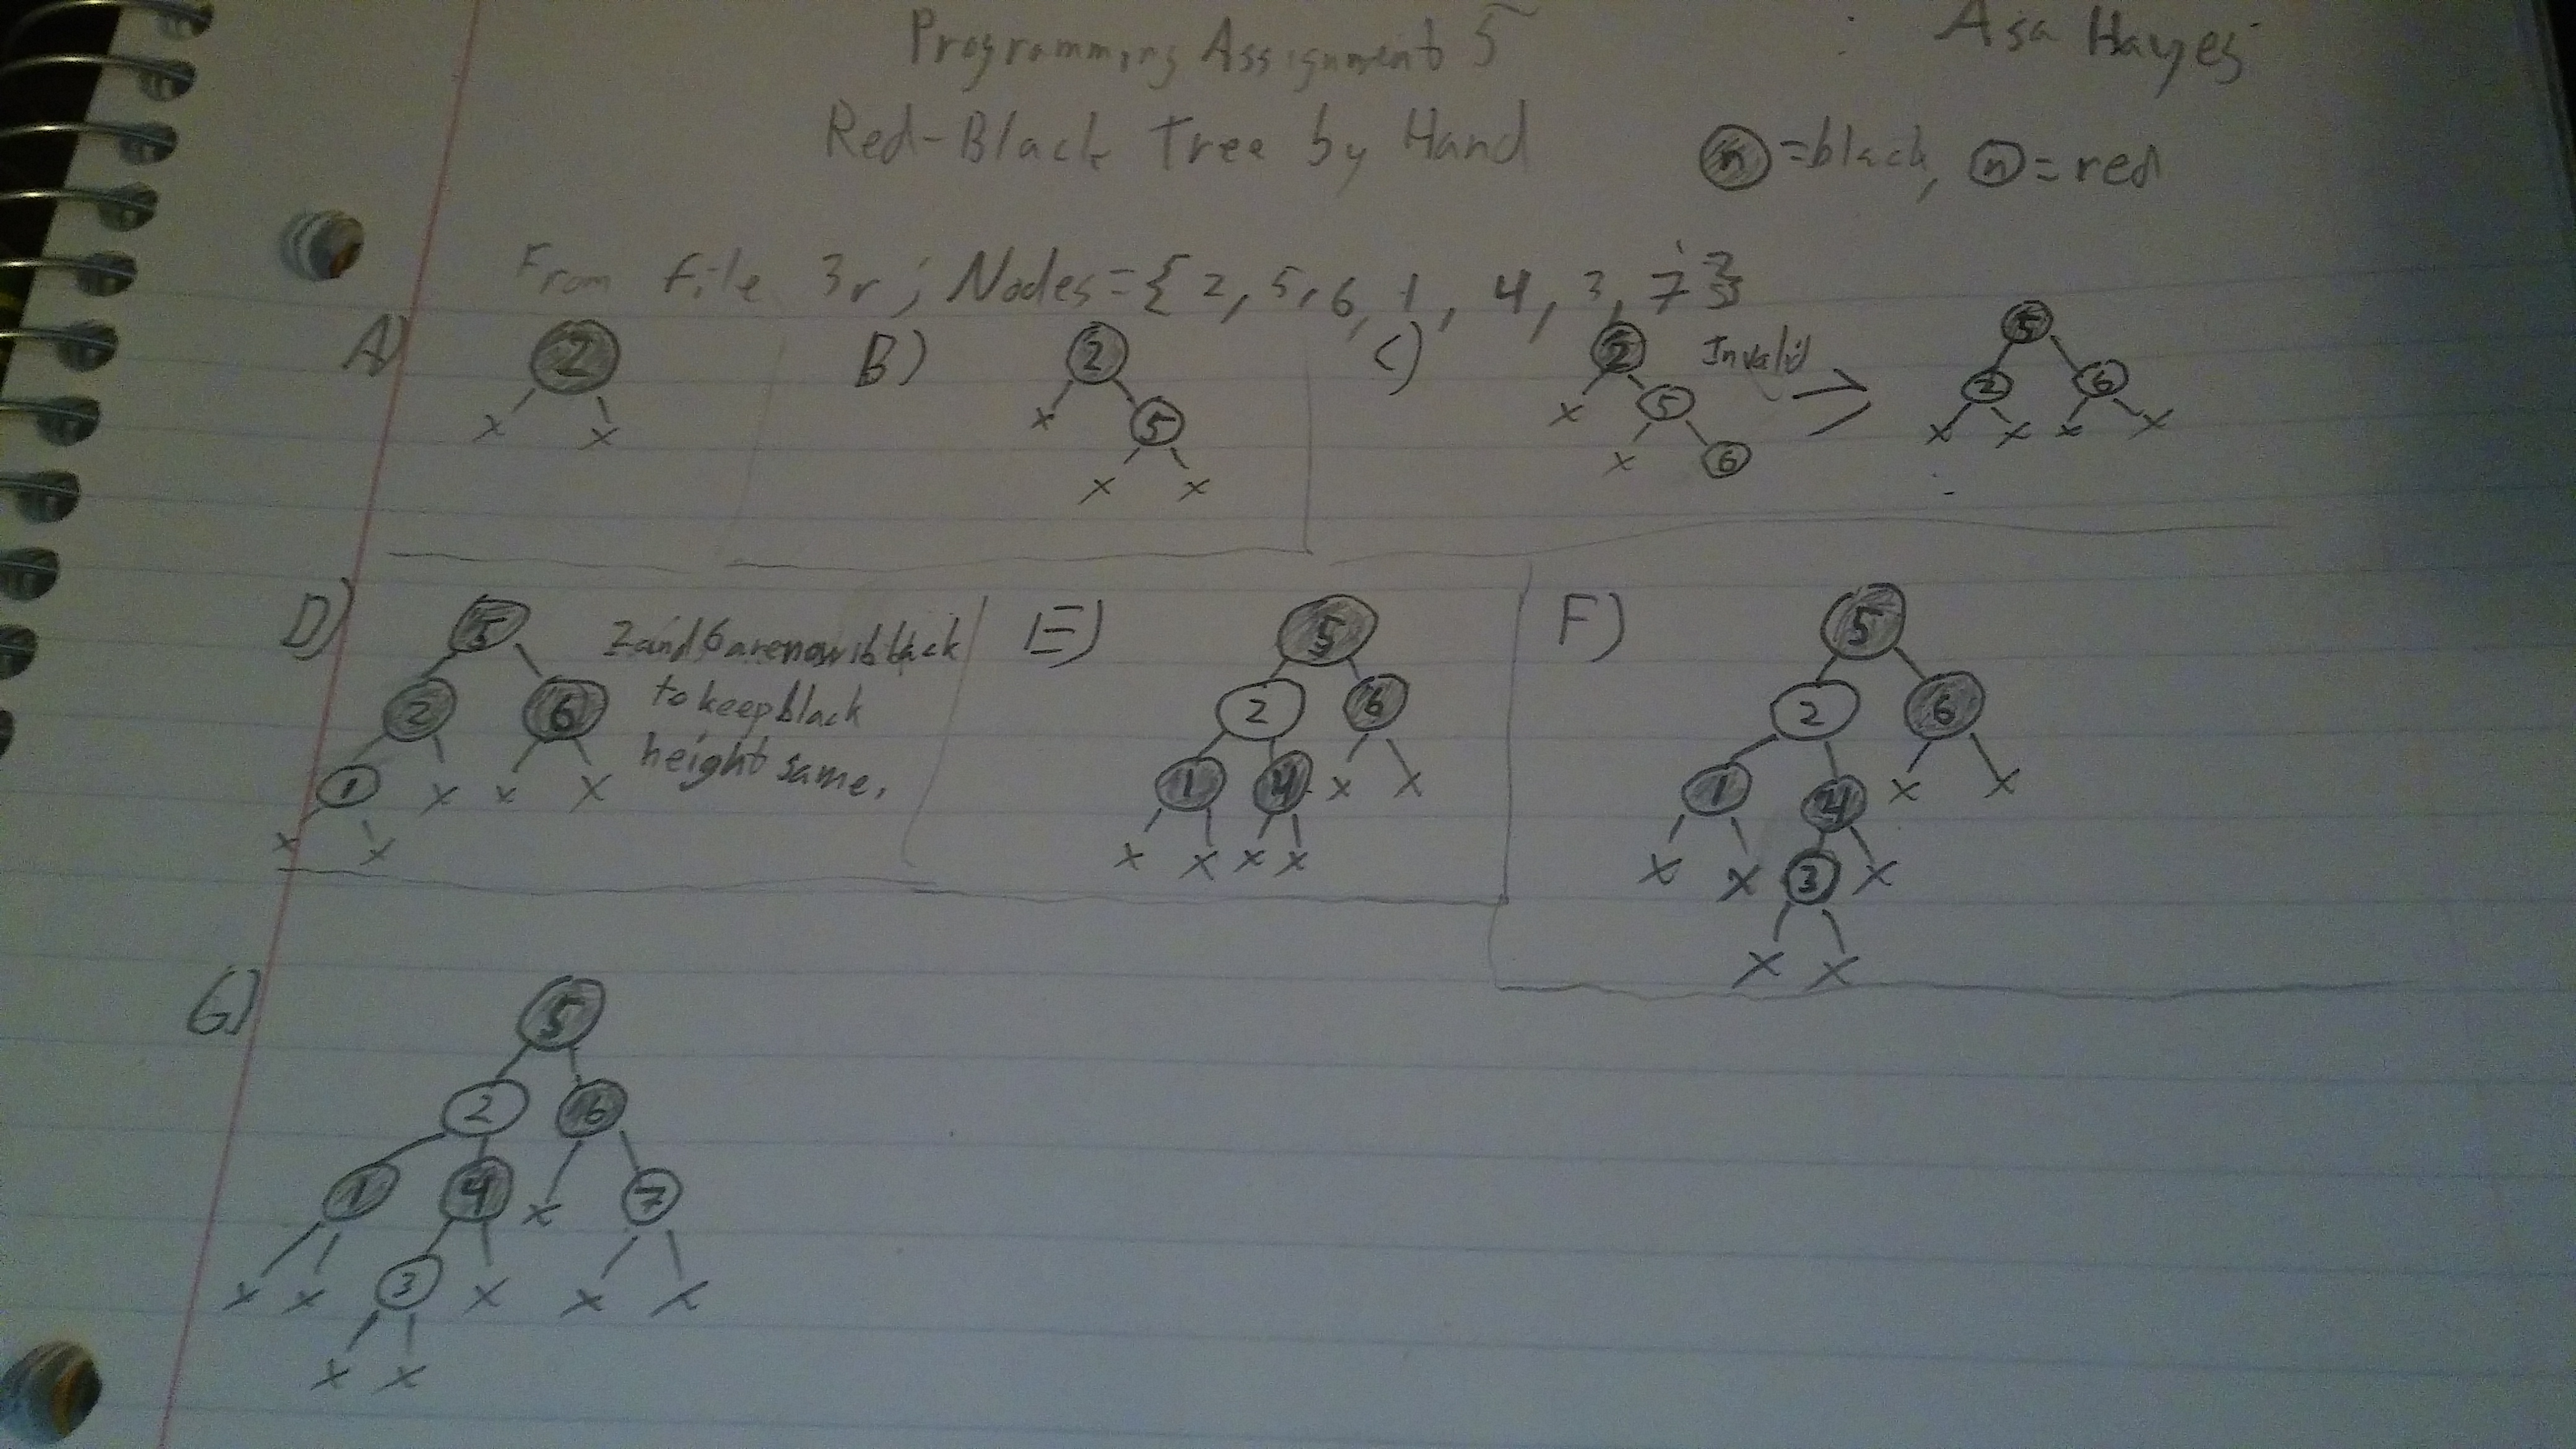 Programming Assignment 5
Asa Hayes
Red-Black Tree by Hand
n =black, n = red
From file 3r; Nodes={2, 5, 6, 1, 4, 3, 7}
A)
2
x x
B)
2
x 5
x x
C)
2 Invalid
x 5
x 6
=>
5
2 6
x x x x
D)
5
2 6
1 x x x
x x
2 and 6 are now black
to keep black
height same.
E)
5
2 6
1 4 x x
x x x x
F)
5
2 6
1 4 x x
x x 3 x
x x
G)
5
2 6
1 4 x 7
x x 3 x x x
x x